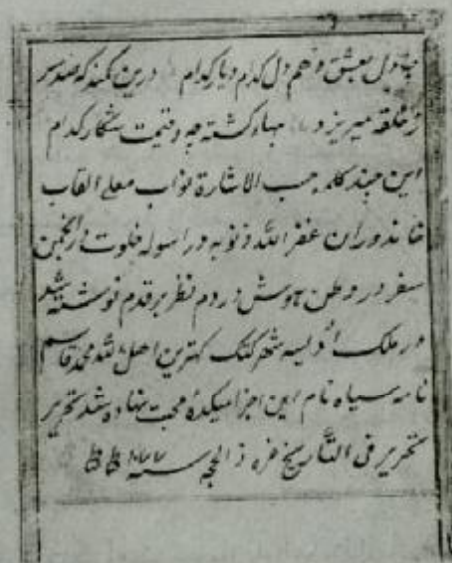 چه دل بعشق دهم دل کدام و یار کدام درین کمند که صد سر
ز حلقه میریزد بهاء کشته چه و قیمت شکار کدام
این چند کلمه حسب الاشارة نواب معلی القاب
خاندوران غفر الله ذنوبه در اسوله خلوت در انجمن
سفر در وطن هوش در دم نظر بر قدم نوشته شد
در ملک اودیسه شهر کتک کمترین اهل الله محمد قاسم
نامه سیاه نام این اجزا میکدهٔ محبت نهاده شد تحریر
تحریر فی التاریخ غره ذالحجه سنه ۱۰۷۷